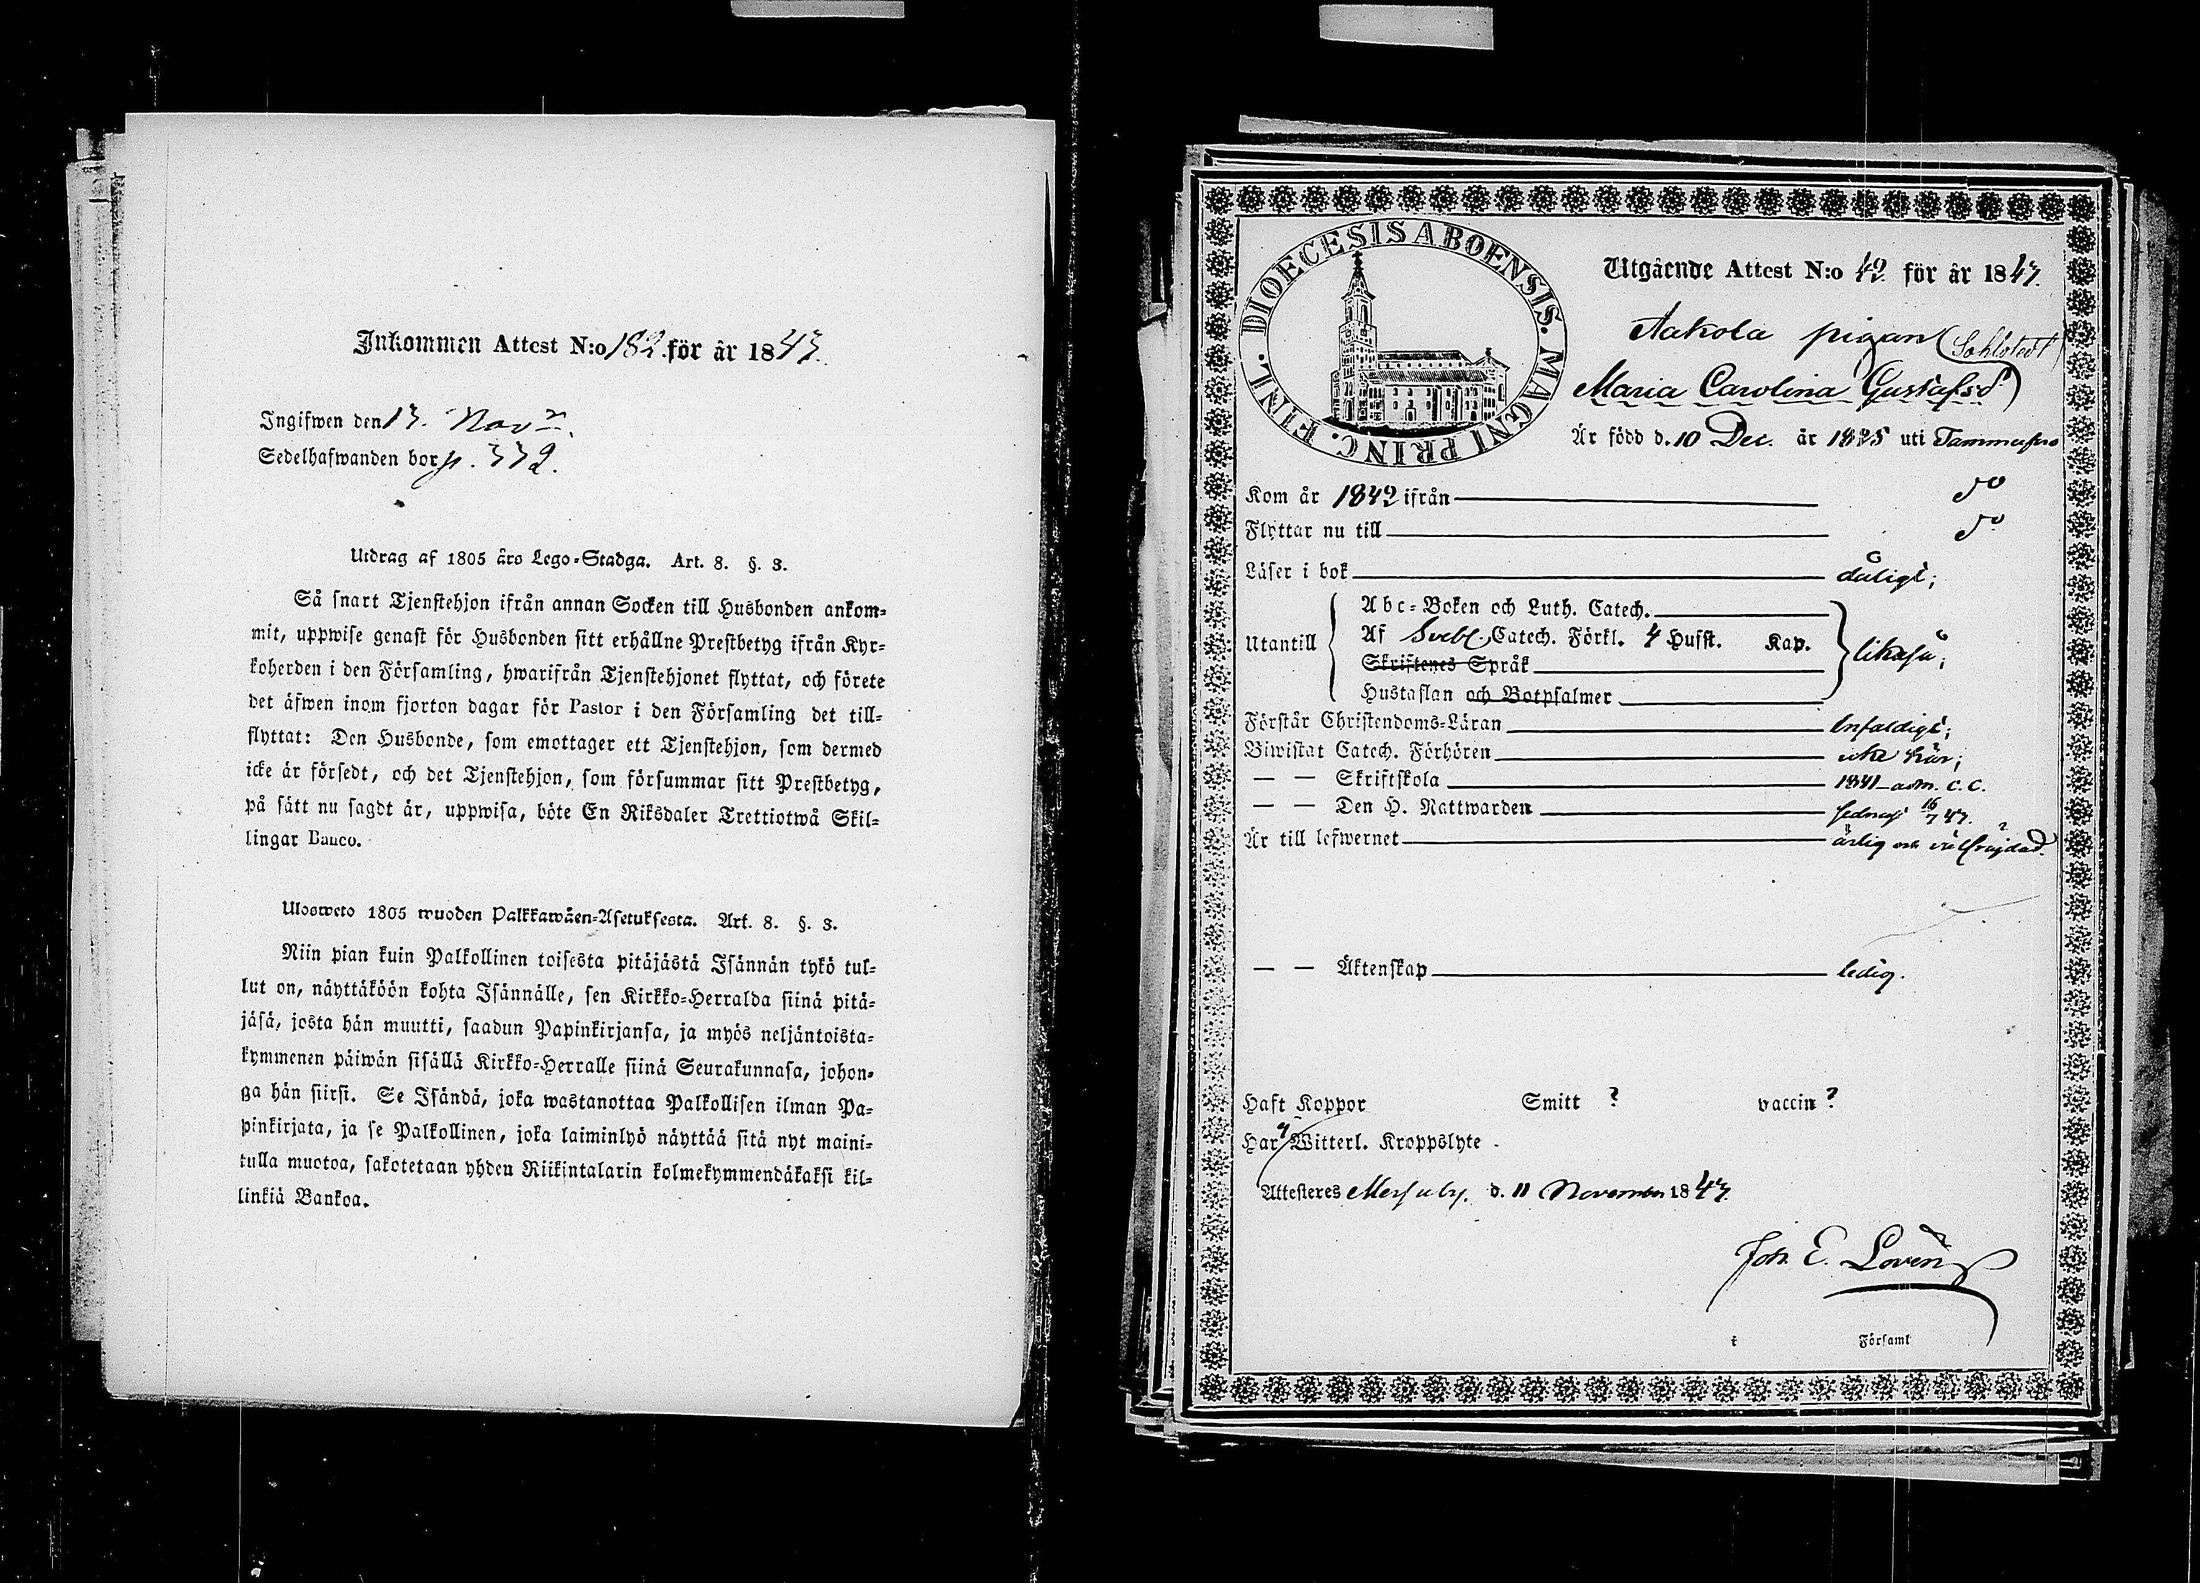 Inkommen Attest N:o 182 för år 1843.
Ingifwen den 13. Nov.
Sedelhafwanden bor p. 332.
Utdrag af 1805 års Lego-Stadga. Art. 8. §. 3.
Så snart Tjenstehjon ifrån annan Socken till Husbonden ankom-
mit, uppwise genast för Husbonden sitt erhållne Prestbetyg ifrån Kyr-
koherden i den Församling, hwarifrån Tjenstehjonet flyttat, och förete
det äfwen inom fjorton dagar för Pastor i den Församling det till-
flyttat: Den Husbonde, som emottager ett Tjenstehjon, som dermed
icke är försedt, och det Tjenstehjon, som försummar sitt Prestbetyg,
på sätt nu sagdt är, uppwisa, böte En Riksdaler Trettiotwå Skil-
lingar Banco.
Ulosweto 1805 wuoden Palkkawäen-Asetuksesta. Art. 8. §. 3.
Niin pian kuin Palkollinen toisesta pitäjästä Isännän tykö tul-
lut on, näyttäköön kohta Isännälle, sen Kirkko-Herralda siinä pitä-
jäsä, josta hän muutti, saadun Papinkirjansa, ja myös neljäntoista-
kymmenen päiwän sisällä Kirkko-Herralle siinä Seurakunnasa, johon-
ga hän siirsi. Se Isändä, joka wastanottaa Palkollisen ilman Pa-
pinkirjata, ja se Palkollinen, joka laiminlyö näyttää sitä nyt maini-
tulla muotoa, sakotetaan yhden Riikintalarin kolmekymmendäkaksi kil-
linkiä Bankoa.
DIOECESIS ABOENSIS. MAGNI PRINC. FINL.
Utgående Attest N:o 42 för år 1843.
Aakola pigan (Sahlstedt)
Maria Carolina Gustafsd)
Är född d. 10 Dec. år 1825 uti Tammerfors
Kom år 1842 ifrån do
Flyttar nu till do
Läser i bok dåligt;
Utantill
Abc-Boken och Luth. Catech.
Af Svebl. Catech. Förkl. 4 Hufst. Kap.
Skriftenes Språk
Hustaflan och Botpsalmer
likaså;
Förstår Christendoms-Läran Enfaldigt;
Biwistat Catech. Förhören icke här;
— — Skriftskola 1841 adm. c. c.
— — Den H. Nattwarden sednast 16/7 43.
Är till lefwernet ärlig och välfräjdad.
— — Äktenskap ledig.
Haft Koppor Smitt ? vaccin ?
Har Witterl. Kroppslyte
Attesteres Messuby. d. 11 November 1843
Joh. E. Lovén
i Församl